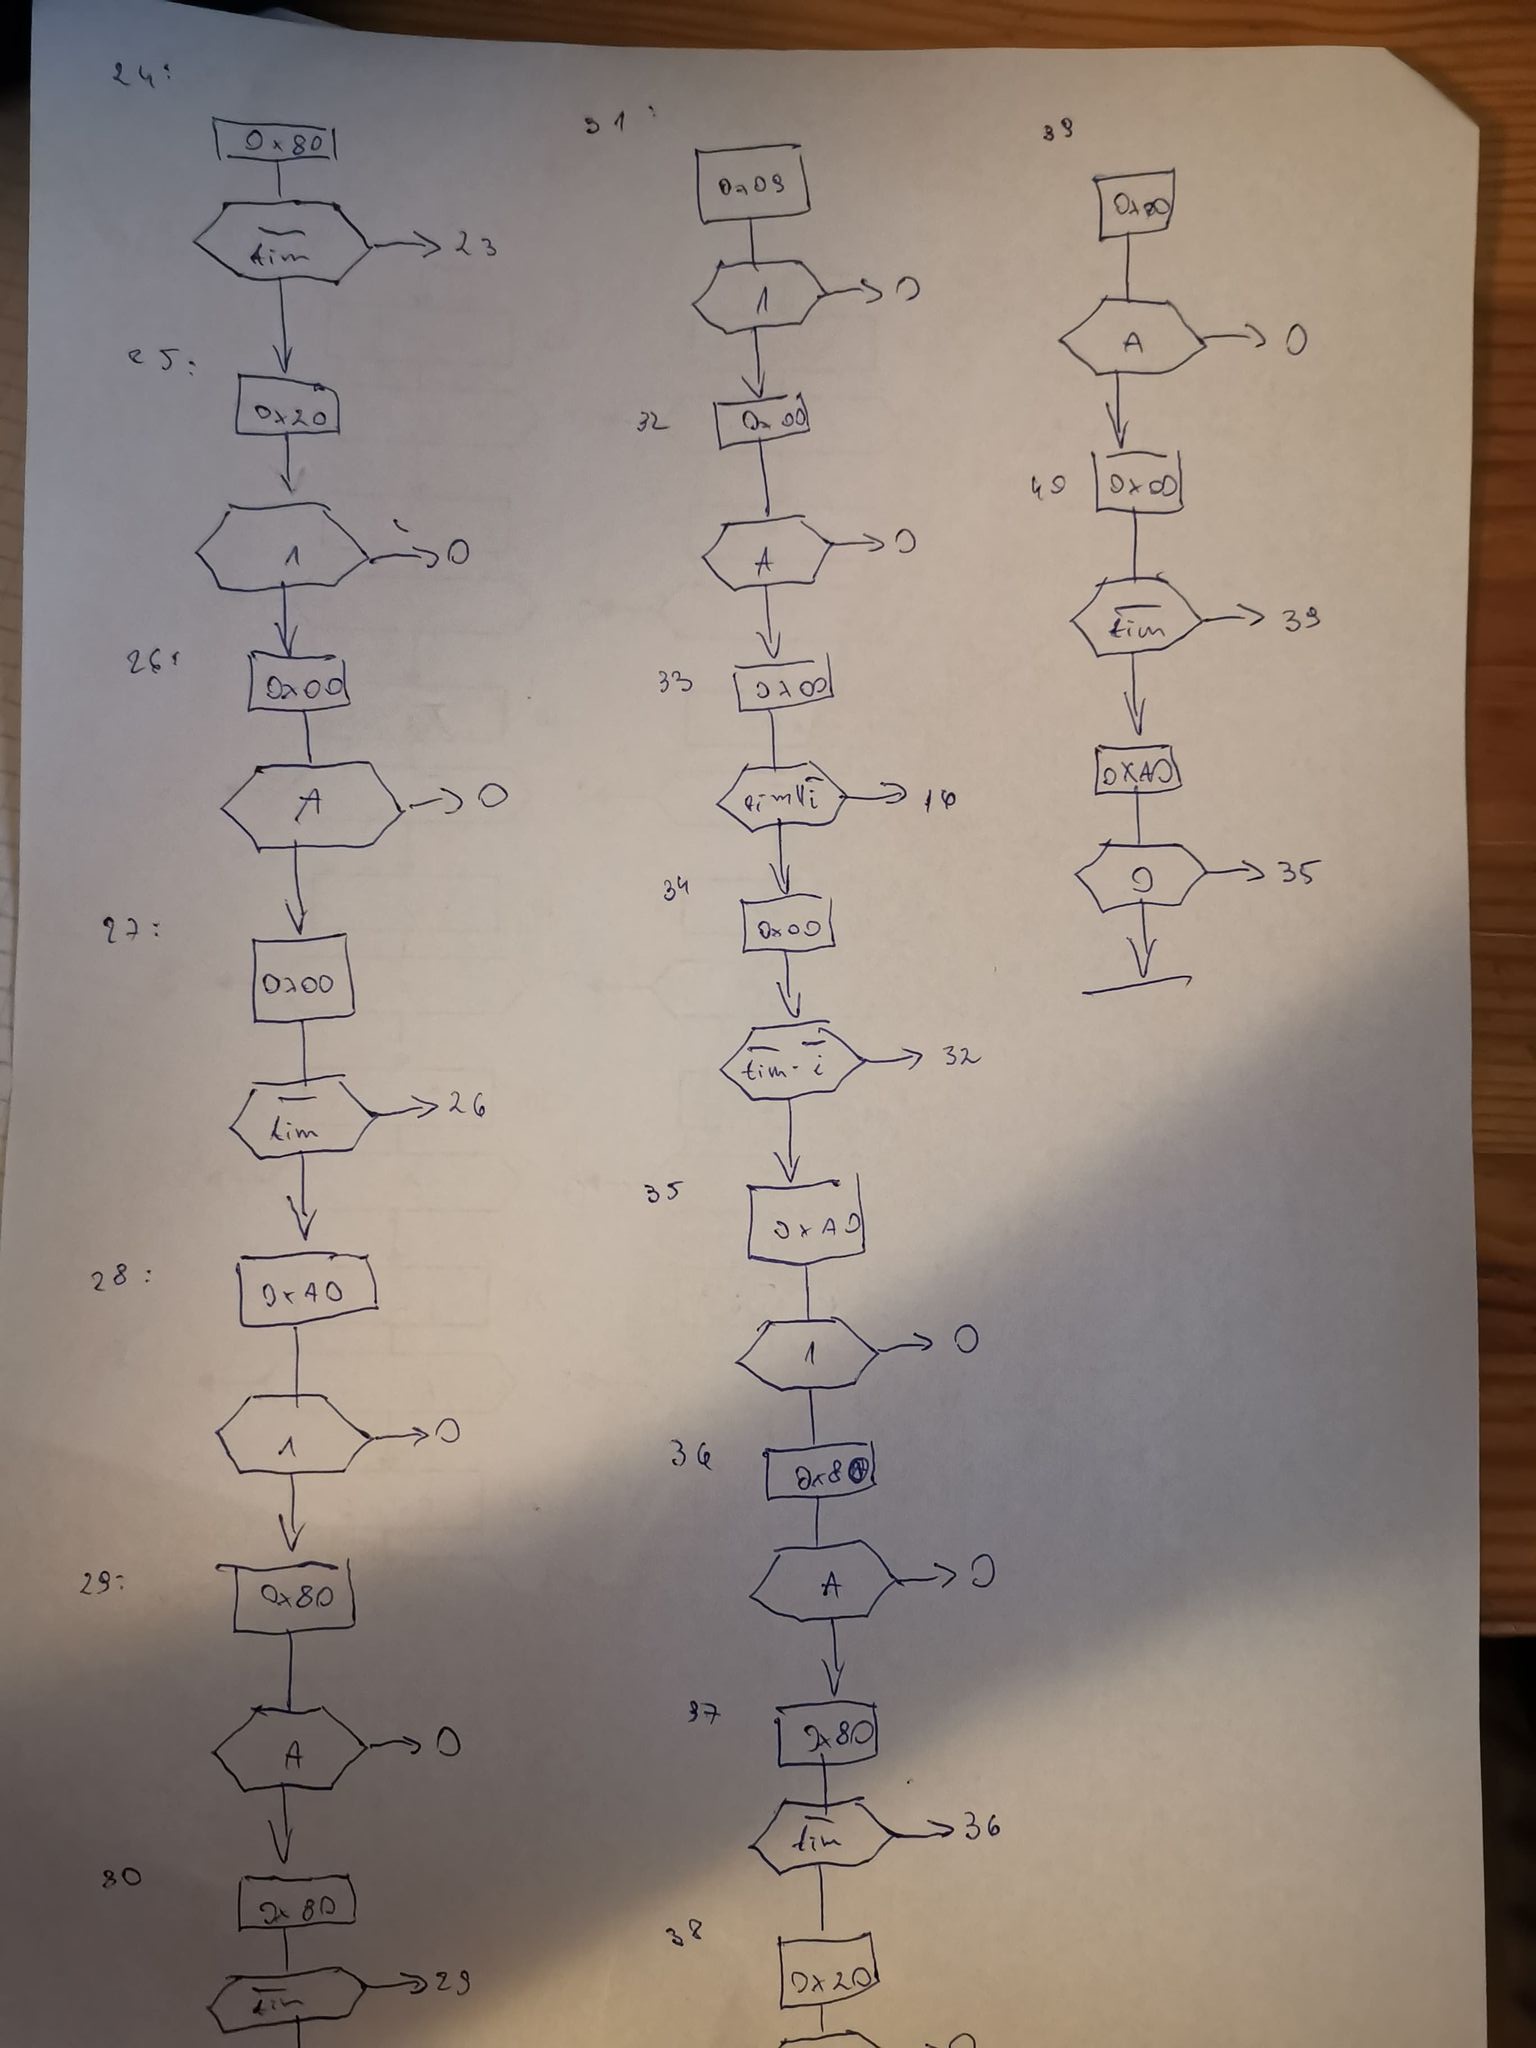 24:
0x80
t̅i̅m̅ → 23
25:
0x20
1 → 0
26:
0x00
A → 0
27:
0x00
t̅i̅m̅ → 26
28:
0xA0
1 → 0
29:
0x80
A → 0
30
0x80
t̅i̅m̅ → 29
31:
0x09
1 → 0
32
0x00
A → 0
33
0x00
tim∨i̅ → 16
34
0x00
t̅i̅m̅ · i̅ → 32
35
0xA0
1 → 0
36
0x80
A → 0
37
0x80
t̅i̅m̅ → 36
38
0x20
39
0x00
A → 0
40
0x00
t̅i̅m̅ → 39
0xA0
0 → 35